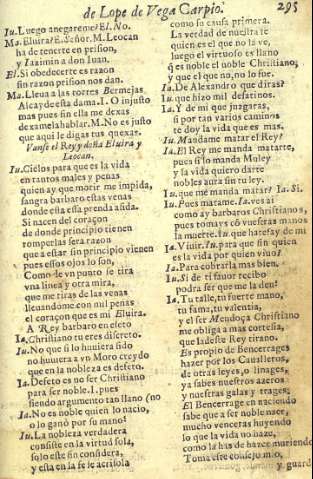 de Lope de Vega Carpio. 295
Iu. Luego anegareme? El. No.
Ma. Eluira? E. Señor. M. Leocan
ha de tenerte en prision,
y Iazimin a don Iuan.
El. Si obedecerte es razon
sin razon prision nos dan.
Ma. Lleua a las torres Bermejas
Alcayde esta dama. I. O injusto
mas pues sin ella me dexas
dexamela hablar. M. No es justo
que aqui le digas tus quexas.
Vanse el Rey, y doña Eluira y
Leocan.
Iu. Cielos para que es la vida
en tantos males y penas
quien ay que morir me impida,
sangra barbaro estas venas
donde esta essa prenda asida.
Si nacen del coraçon
de donde principio tienen
romperlas sera razon
que a estar sin principio vienen
pues essos ojos lo son,
Como de vn punto se tira
vna linea y otra mira,
que me tiras de las venas
lleuandome con mil penas
el coraçon que es mi Eluira.
A Rey barbaro en efeto
Ia. Christiano tu eres discreto.
Iu. No que si lo huuiera sido
no huuiera a vn Moro creydo
que en la nobleza es defeto.
Ia. Defeto es no ser Christiano
para ser noble. I. pues
siendo argumento tan llano (no
Ia. No es noble quien lo nacio,
o lo ganò por su mano?
Iu. La nobleza verdadera
consiste en la virtud sola,
solo este fin considera,
y esta en la fe se acrisola
como su causa primera.
La verdad de nuestra fe
quien es el que no la ve,
luego el virtuoso es llano
q̃ es noble el noble Christiano;
y que el que no, no lo fue.
Ia. De Alexandro que diras?
Iu. que hizo mil desatinos.
Ia. Y de mi que juzgaras,
si por tan varios caminos
te doy la vida que es mas.
Iu. Mandame matar el Rey?
Ia. El Rey me manda matarte,
pues si lo manda Muley
y la vida quiero darte
nobles aura sin tu ley.
Iu. que me manda matar? Ia. Si.
Iu. Pues matame. Ia. ves ai
como ay barbaros Christianos,
pues tomays cõ vuestras manos
la muerte. Iu. que harè? ay de mi
Ia. Viuir. Iu. para que sin quien
es la vida por quien viuo?
Ia. Para cobrarla mas bien.
Iu. Si de ti fauor recibo
podra ser que me la den?
Ia. Tu talle, tu fuerte mano,
tu fama, tu valentia,
y el ser Mendoça Christiano
me obliga a mas cortesia,
que la deste Rey tirano.
Es propio de Bencerrages
hazer por los Caualleros,
de otras leyes, o linages,
ya sabes nuestros azeros
y nuestras galas y trages;
El Bencerrage en naciendo
sabe que a ser noble nace,
mucho venceras huyendo
lo que la vida no haze,
como la has de hazer muriendo
Toma este consejo mio,
y guard